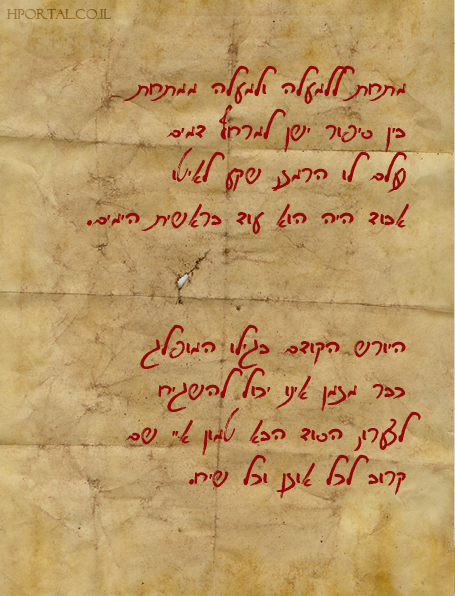 HPORTAL.CO.IL
מתחת ללמעלה ולמעלה ממתחת
בין סיפור ישן למרחץ דמים
לו שקע לאיטו
אבוד היה הוא עוד בראשית הימים.
היורש הקודם בגילו המופלג
כבר מזמן אינו יכול להשגיח
הסוד הבא טמון אי שם
קרוב לכל אוזן וכל שיח.